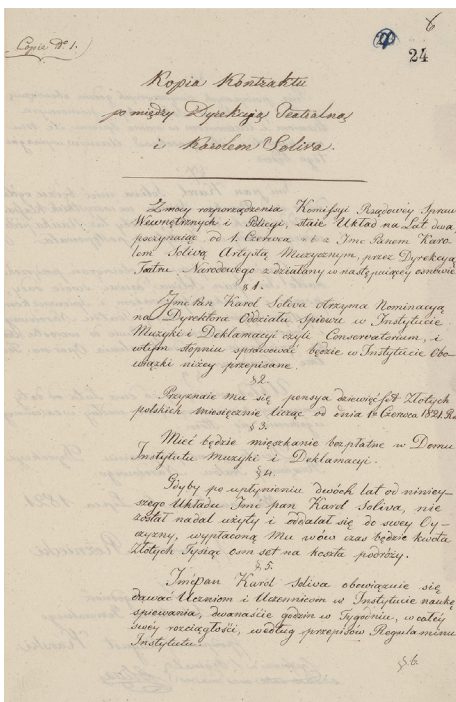 6
24
Copie No. 1.
Kopia Kontraktu
pomiędzy Dyrekcyią Teatralną
i Karolem Soliva.
Z mocy rozporządzenia Komissyi Rządowéy Spraw
Wewnętrznych i Policyi, staie Układ na Lat dwa
poczynaiąc od 1. Czerwca z Jmc Panem Karo-
lem Solivą Artystą Muzycznym, przez Dyrekcyą
Teatru Narodowego zdziałany w następuiącéy osnowie
§ 1.
Jmć Pan Karol Soliva otrzyma Nominacyą
na Dyrektora Oddziału śpiewu w Instytucie
Muzyki i Deklamacyi czyli Conservatorium, i
w tym stopniu sprawować będzie w Instytucie Obo-
wiązki niżey przepisane.
§ 2.
Przyznaie mu się pensya dziewięćset Złotych
polskich miesięcznie licząc od dnia 1o Czerwca 1821. Ro
§ 3.
Mieć będzie mieszkanie bezpłatne w Domu
Instytutu Muzyki i Deklamacyi.
§ 4.
Gdyby po upłynieniu dwóch lat od niniey-
szego Układu Jmć pan Karol Soliva, nie
został nadal użyty i oddalał się do swey Oy-
czyzny, wypłaconą Mu wów czas będzie kwota
Złotych Tysiąc ośm set na koszta podróży.
§ 5.
Jmć Pan Karol Soliva obowiązuie się
dawać Uczniom i Uczennicom w Instytucie naukę
śpiewania, dwanaście godzin w Tygodniu, w całéy
swey rozciągłości, według przepisów Regulaminu
Instytutu.
§ 6.